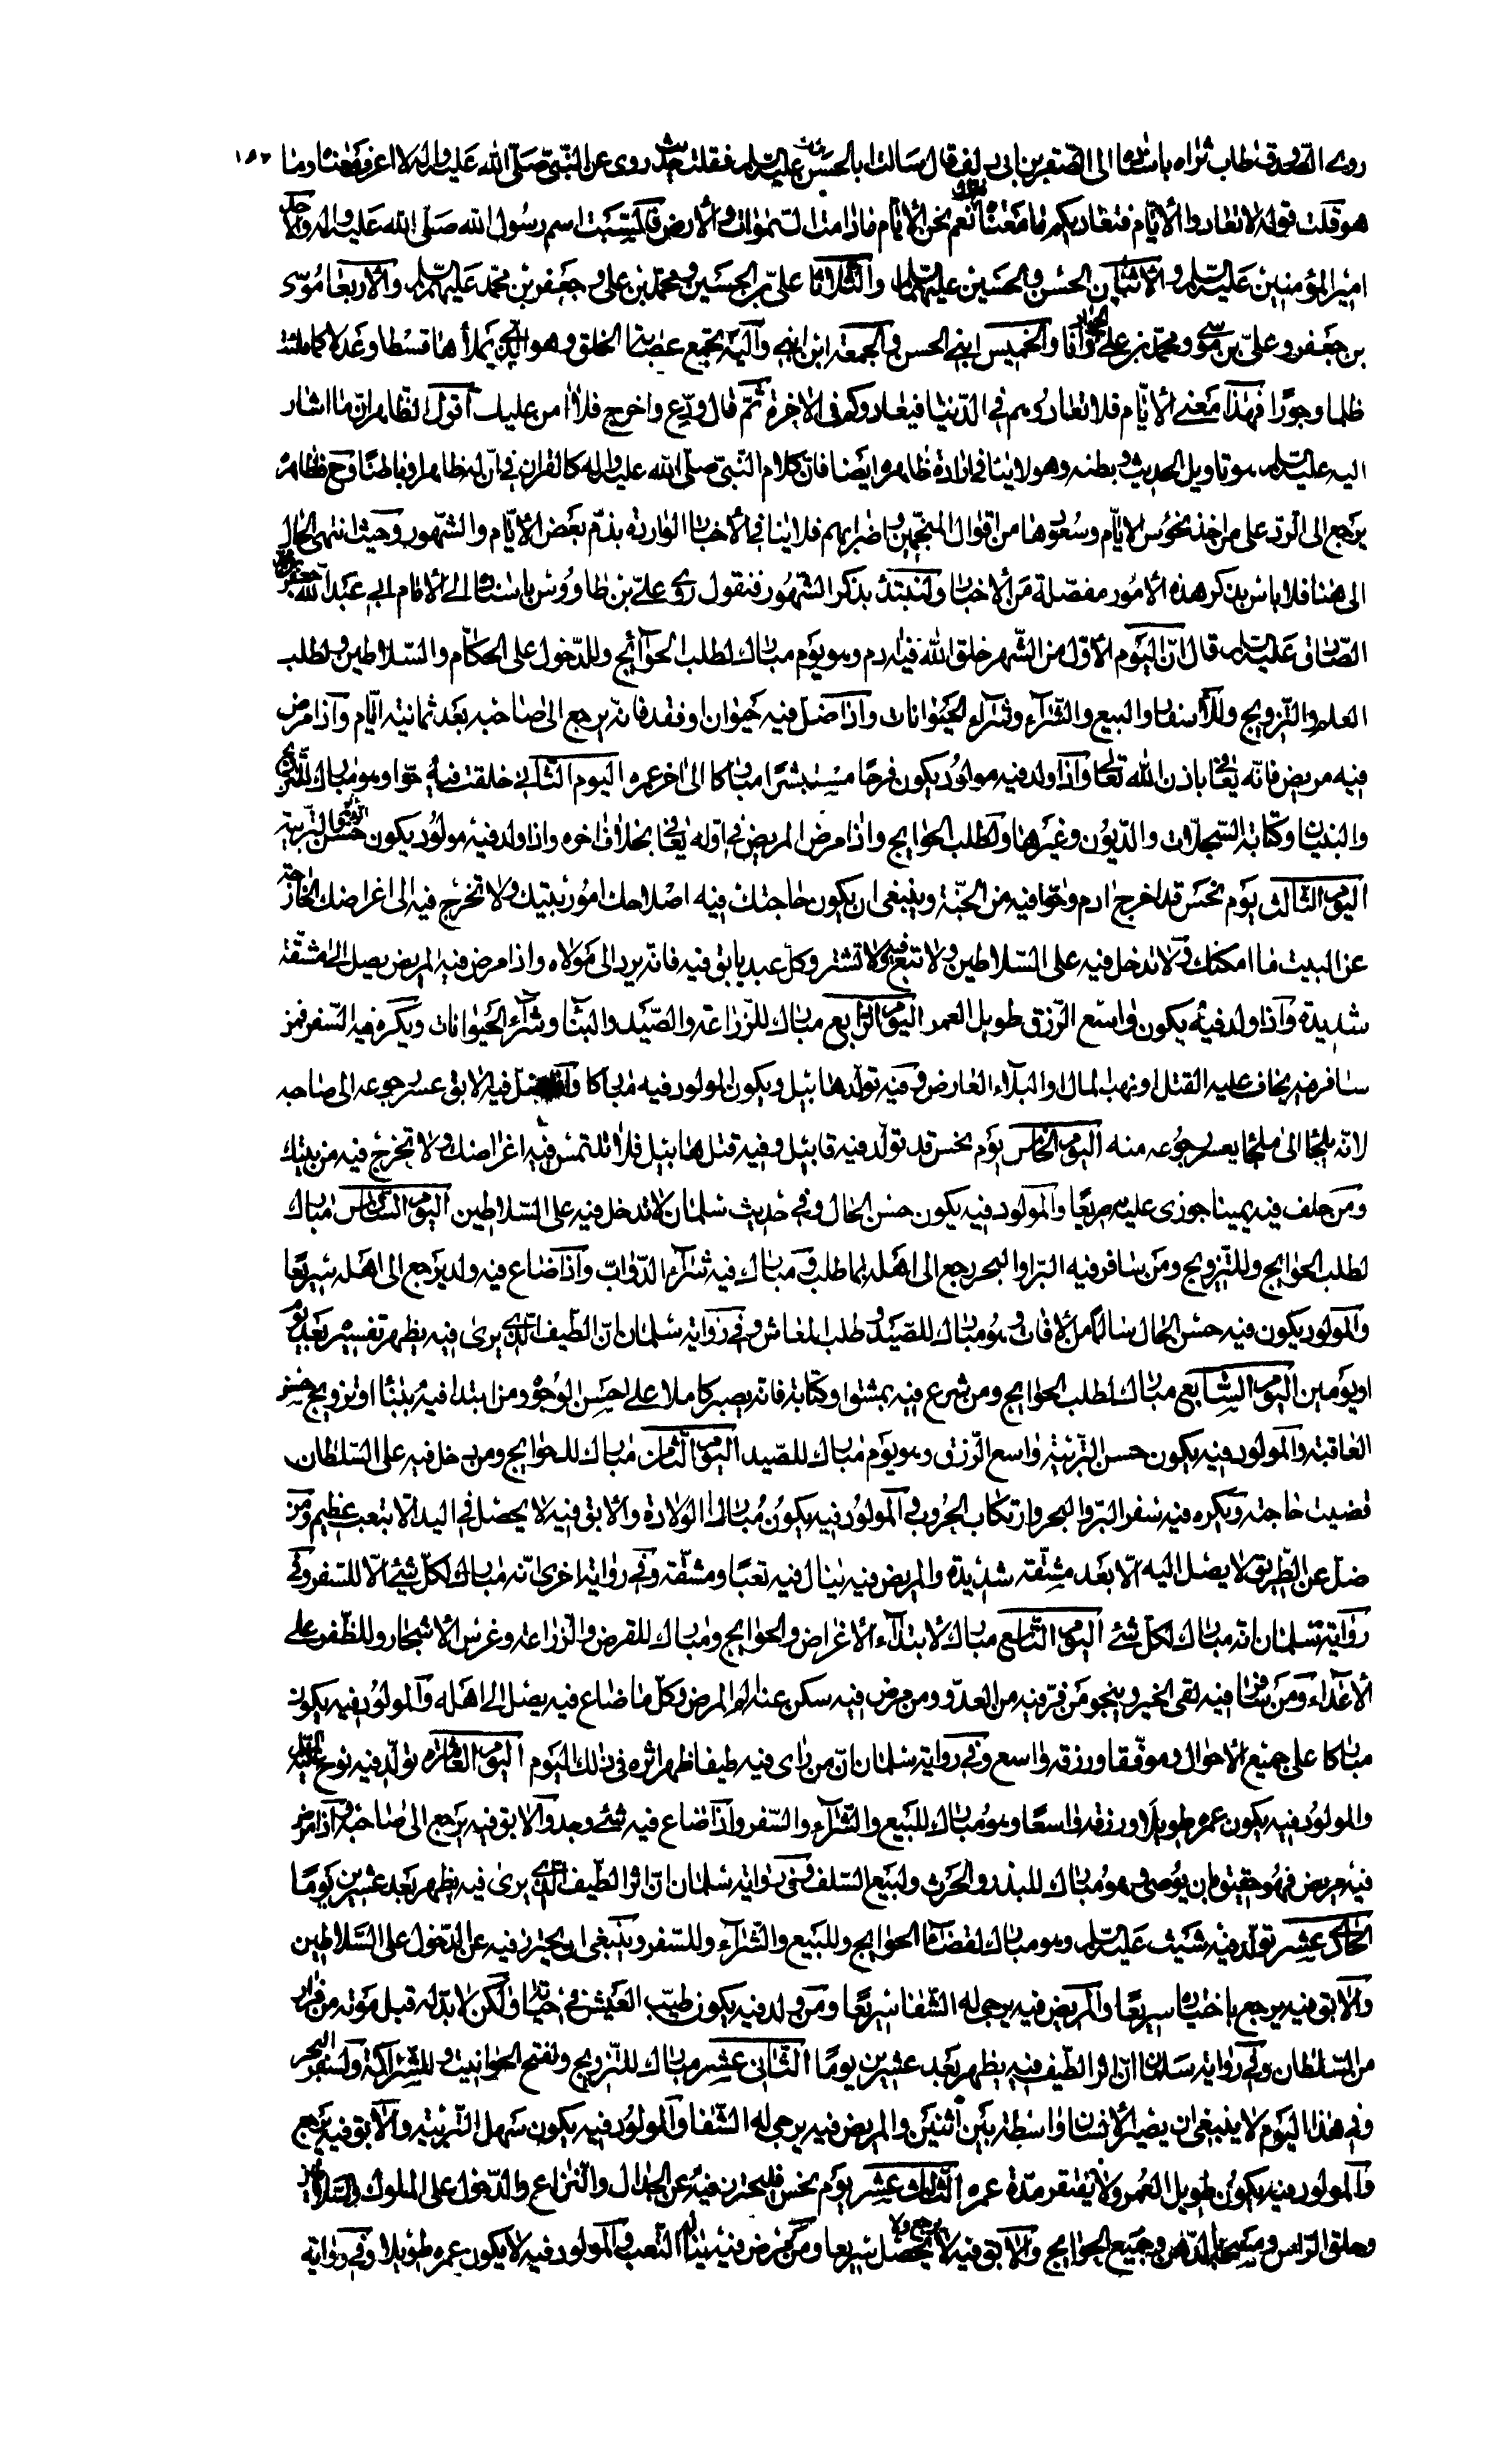 روى الصدوق طاب ثراه باسناده الى الصقر بن ابى دلف قال سالت ابا الحسن عليه السلم فقلت حديث روى عن النبى صلى الله عليه واله لا اعرف معناه وما
هو قلت قوله لا تعادوا الأيام فتعاديكم ما معناه فقال نعم نحن الأيام ما دامت السموات والأرض فالسبت اسم رسول الله صلى الله عليه واله والأحد
امير المؤمنين عليه السلم والأثنان الحسن والحسين عليهما السلم والثلاثا على بن الحسين ومحمد بن على وجعفر بن محمد عليهم السلم والأربعا موسى
بن جعفر وعلى بن موسى ومحمد بن على الجواد وانا والخميس ابنى الحسن والجمعة ابن ابنى واليه تجتمع عصابة الخلق وهو الذى يملأها قسطا وعدلا كما ملئت
ظلما وجورا فهذا معنى الأيام فلا تعادوهم فى الدنيا فيعادوكم فى الاخرة ثم قال ودع واخرج فلا امن عليك أقول الظاهر ان ما اشار
اليه عليه السلم هو تاويل الحديث وبطنه وهو لا ينافى ارادة ظاهره ايضا فان كلام النبى صلى الله عليه واله كالقران فى ان له ظاهرا وباطنا وح فظاهره
يرجع الى الرد على من اخذ نحوس الايام وسعودها من اقوال المنجمين واضرابهم فلا ينافى الأخبار الوارده بذم بعض الأيام والشهور وحيث انتهى الحال
الى هنا فلا باس بذكر هذه الأمور مفصلة من الأخبار ولنبتدئ بذكر الشهور فنقول روى على بن طاووس باسناده الى الأمام ابى عبد الله جعفر بن محمد
الصادق عليه السلم قال ان اليوم الأول من الشهر خلق الله فيه ادم وهو يوم مبارك لطلب الحوائج وللدخول على الحكام والسلاطين ولطلب
العلم والتزويج وللأسفار والبيع والشراء وشراء الحيوانات واذا ضل فيه حيوان او فقد فانه يرجع الى صاحبه بعد ثمانية ايام واذا مرض
فيه مريض فانه يعافى باذن الله تعالى واذا ولد فيه مولود يكون فرحا مستبشرا مباركا الى اخر عمره اليوم الثانى خلقت فيه حوا وهو مبارك للتزويج
والبنيان وكتابة السجلات والديون وغيرها ولطلب الحوايج واذا مرض المريض فى اوله يعافى بخلاف اخره واذا ولد فيه مولود يكون حسن التربية
اليوم الثالث يوم نحس قد اخرج ادم وحوا فيه من الجنة وينبغى ان يكون حاجتك فيه اصلاحك امور بيتك ولا تخرج فيه الى اغراضك الخارجة
عن البيت ما امكنك ولا تدخل فيه على السلاطين ولا تبع فيه ولا تشتر وكل عبد يابق فيه فانه يرد الى مولاه واذا مرض فيه المريض يصل الى مشقة
شديدة واذا ولد فيه يكون واسع الرزق طويل العمر اليوم الرابع مبارك للزراعة والصيد والبنا وشراء الحيوانات ويكره فيه السفر فمن
سافر فيه يخاف عليه القتل او نهب المال والبلاء العارض وفيه تولد هابيل ويكون المولود فيه مباركا ضل فيه الابق عسر رجوعه الى صاحبه
لانه يلجا الى ملجا يعسر رجوعه منه اليوم الخامس يوم نحس قد تولد فيه قابيل وفيه قتل هابيل فلا تلتمس فيه اغراضك ولا تخرج فيه من بيتك
ومن حلف فيه يمينا جوزى عليه سريعا والمولود فيه يكون حسن الحال وفى حديث سلمان لا تدخل فيه على السلاطين اليوم السادس مبارك
لطلب الحوايج وللتزويج ومن سافر فيه البر او البحر رجع الى اهله بما طلب ومبارك فيه شراء الدواب واذا ضاع فيه ولد يرجع الى اهله سريعا
والمولود يكون فيه حسن الحال سالما من الافات وهو مبارك للصيد وطلب المعاش وفى رواية سلمان ان الطيف الذى يرى فيه يظهر تفسيره بعد يوم
او يومين اليوم السابع مبارك لطلب الحوايج ومن شرع فيه بمشق او كتابة فانه يصير كاملا على احسن الوجوه ومن ابتدا فيه بنا او تزويج حسن
العاقبة والمولود فيه يكون حسن التربية واسع الرزق وهو يوم مبارك للصيد اليوم الثامن مبارك للحوايج ومن دخل فيه على السلطان
قضيت حاجته ويكره فيه سفر البر والبحر وارتكاب الحروب والمولود فيه يكون مبارك الولادة والأبق فيه لا يحصل فى اليد الا بتعب عظيم ومن
ضل عن الطريق لا يصل اليه الا بعد مشقة شديدة والمريض فيه ينال فيه تعبا ومشقة وفى رواية اخرى انه مبارك لكل شئ الا للسفر وفى
رواية سلمان انه مبارك لكل شئ اليوم التاسع مبارك لابتداء الأغراض والحوايج ومبارك للقرض والزراعة وغرس الأشجار وللظفر على
الأعداء ومن سافر فيه لقى الخير وينجو من فر فيه من العدو ومن مرض فيه سكن عنه الم المرض وكل ما ضاع فيه يصل الى اهله والمولود فيه يكون
مباركا على جميع الأحوال وموفقا ورزقه واسع وفى رواية سلمان ان من راى فيه طيفا ظهر اثره فى ذلك اليوم اليوم العاشر تولد فيه نوح عليه السلم
والمولود فيه يكون عمره طويلا ورزقه واسعا وهو مبارك للبيع والشراء والسفر واذا ضاع فيه شئ وجد والابق فيه يرجع الى صاحبه واذا مرض
فيه مريض فهو حقيق بان يوصى وهو مبارك للبذر والحرث ولبيع السلف وفى رواية سلمان ان اثر الطيف الذى يرى فيه يظهر بعد عشرين يوما
الحادى عشر تولد فيه شيث عليه السلم وهو مبارك لقضاء الحوايج وللبيع والشراء وللسفر وينبغى ان يحترز فيه عن الدخول على السلاطين
والابق فيه يرجع باختياره سريعا والمريض فيه يرجى له الشفا سريعا ومن ولد فيه يكون طيب العيش فى حياته ولكن لا بد له قبل موته من فرار
من السلطان وفى رواية سلمان ان اثر الطيف فيه يظهر بعد عشرين يوما الثانى عشر مبارك للتزويج ولفتح الحوانيت وللشراكة ولسفر البحر
وفى هذا اليوم لا ينبغى ان يصير الأنسان واسطة بين اثنين والمريض فيه يرجى له الشفا والمولود فيه يكون سهل التربية والابق فيه يرجع
والمولود فيه يكون طويل العمر ولا يفتقر مدة عمره الثالث عشر يوم نحس فليحترز فيه عن الجدال والنزاع والدخول على الملوك والسلاطين
وحلق الراس ومسحه بالدهن وجميع الحوايج والابق فيه لا يرجع ولا يحصل سريعا ومن مرض فيه يناله التعب والمولود فيه لا يكون عمره طويلا وفى رواية